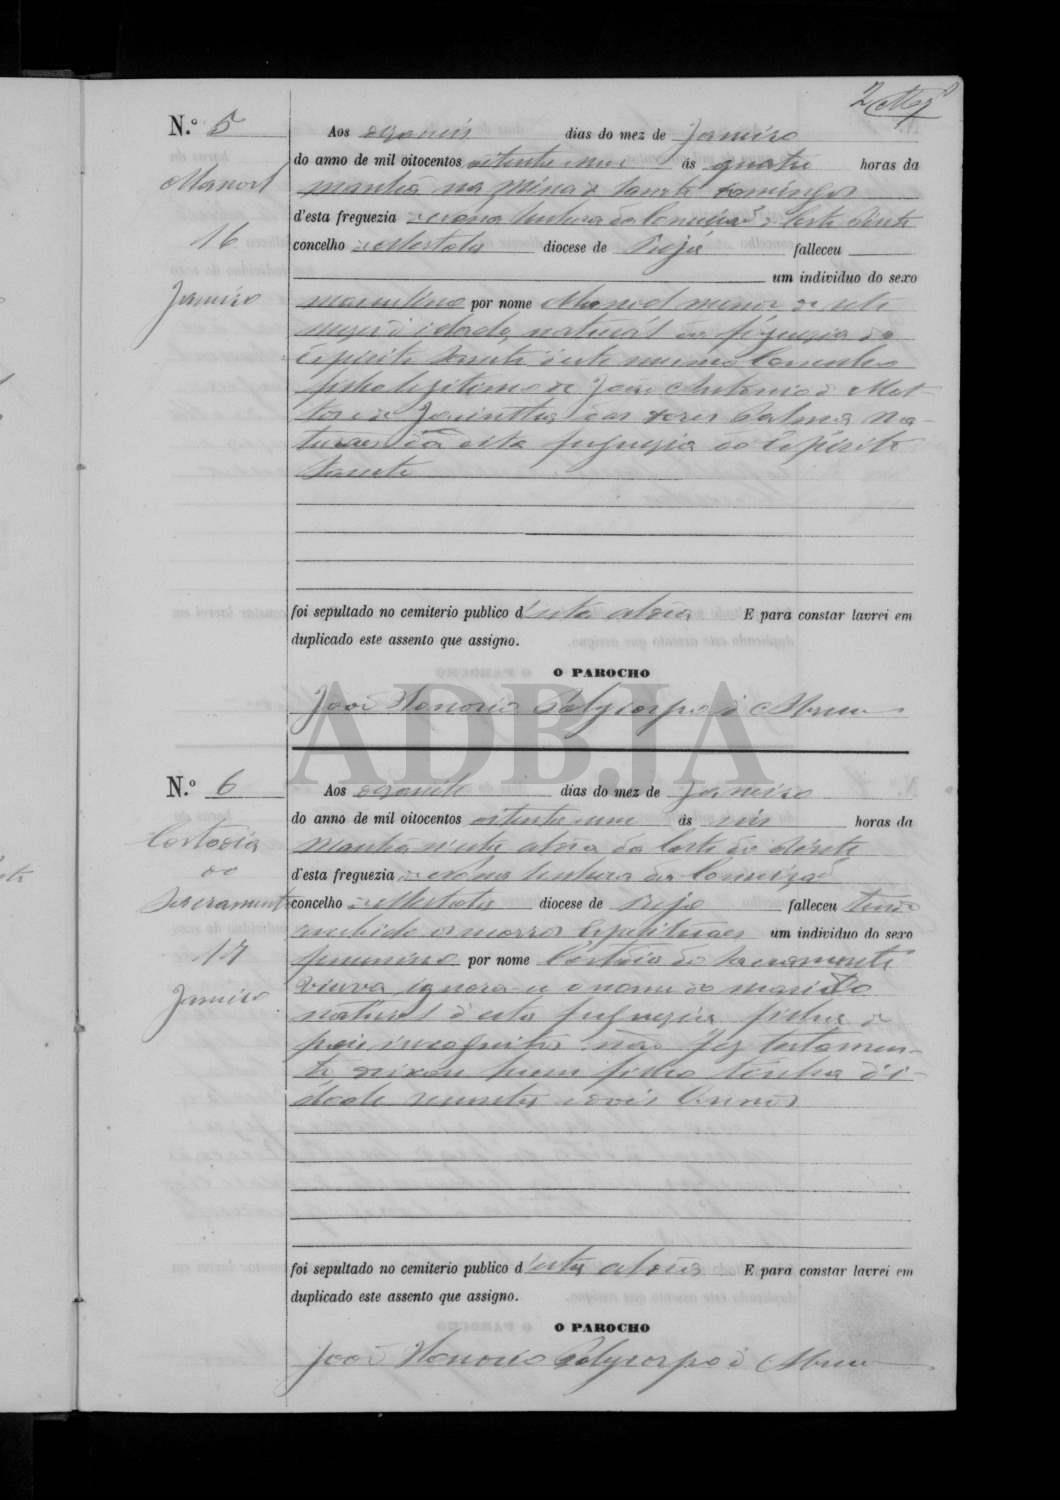 2
N.º 5
Aos dezaseis dias do mez de Janeiro
do anno de mil oitocentos oitenta e um ás quatro horas da
Manoel
manhã na Mina de Sancto Domingos
d'esta freguezia de Santa Anna de Corte do Pinto
16
concelho de Mertola diocese de Beja falleceu
um individuo do sexo
Janeiro
masculino por nome Manoel menor de
mezes de idade, natural da freguezia do
Espirito Sancto d'este mesmo Concelho
filho legitimo de João Antonio de Mat-
tos e de Jacinttha das Dores Palma na-
turaes da dita freguezia do Espirito
Sancto
foi sepultado no cemiterio publico d'esta aldeia E para constar lavrei em
duplicado este assento que assigno.
O PAROCHO
João Honorio Polycarpo d'Abreu
ADBJA
N.º 6
Aos dezasete dias do mez de Janeiro
do anno de mil oitocentos oitenta e um ás seis horas da
Custodia
manhã n'esta aldeia da Corte do Pinto
do
d'esta freguezia de
Sacramento
concelho de Mertola diocese de Beja falleceu tendo
recebido os um individuo do sexo
17
femenino por nome Custodia do Sacramento
Janeiro
viuva, ignora-se o nome do marido
natural d'esta freguezia filha de
paes incognitos não fez testamen-
to deixou hum filho tinha d'i-
dade setenta e dois annos
foi sepultado no cemiterio publico d'esta aldeia E para constar lavrei em
duplicado este assento que assigno.
O PAROCHO
João Honorio Polycarpo d'Abreu